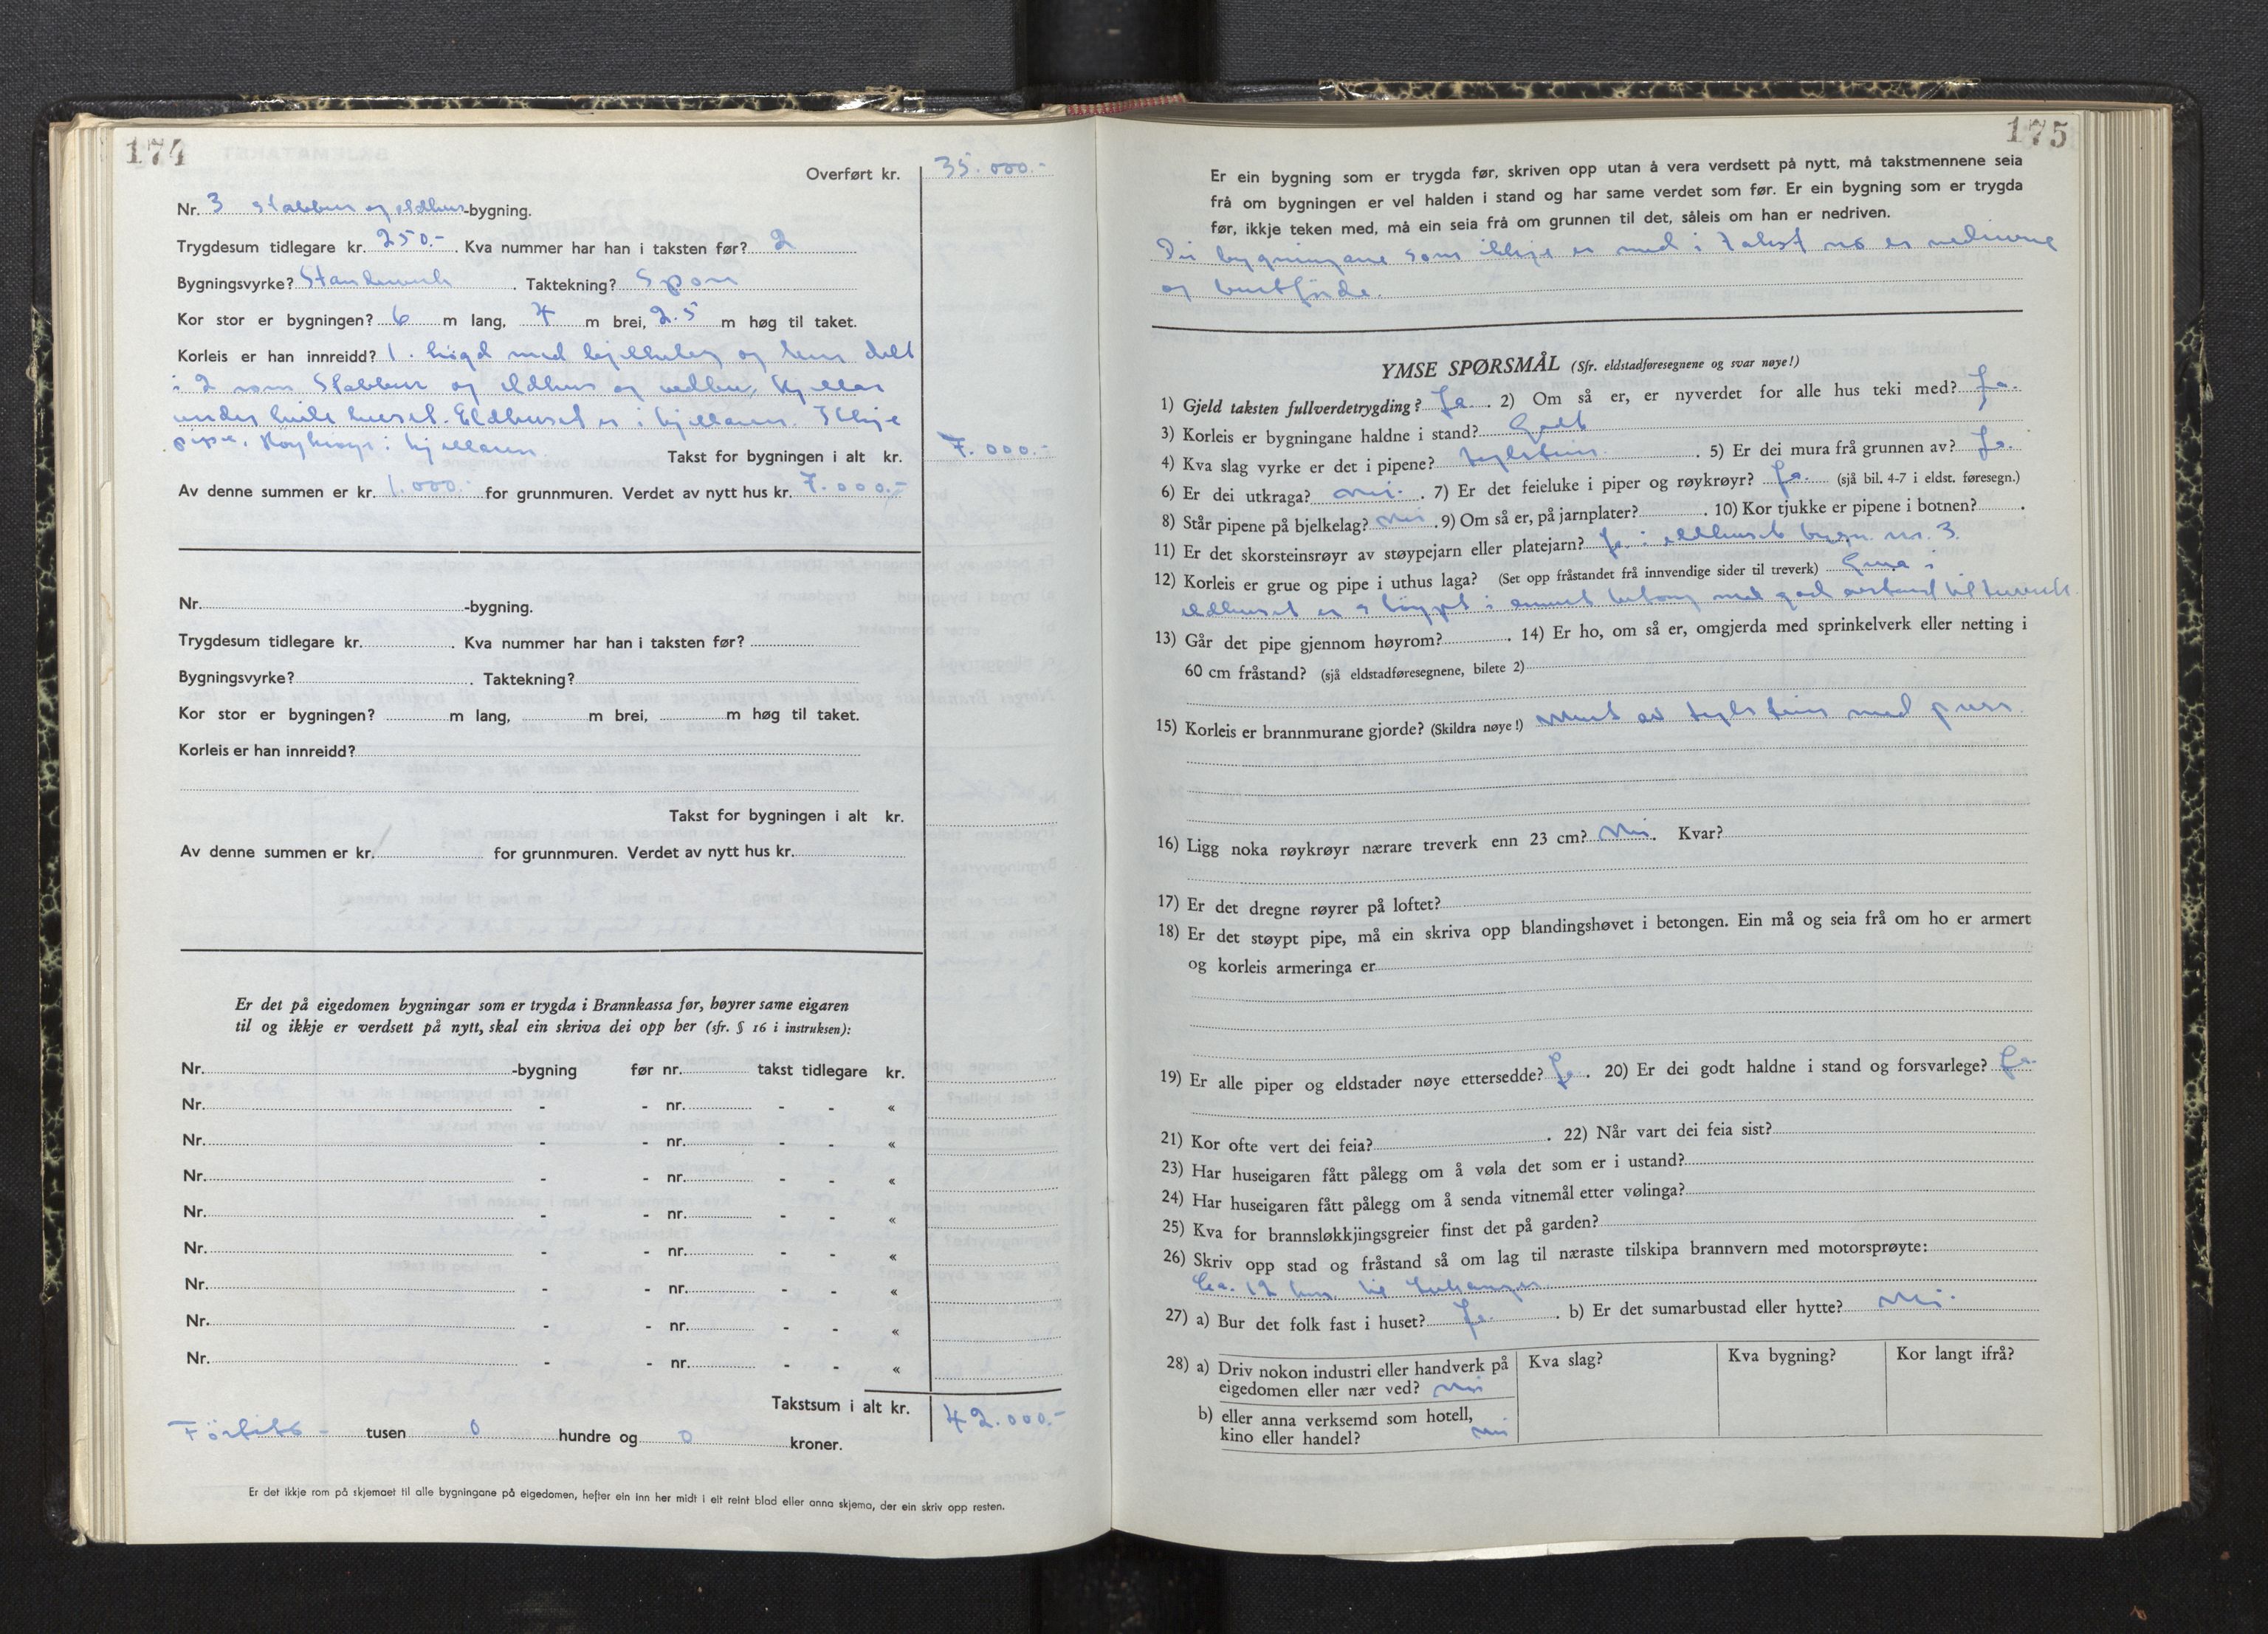 174
Overført kr. 35.000.-
Nr. 3 stabbur og eldhus-bygning.
Trygdesum tidlegare kr. 250.-. Kva nummer har han i taksten før? 2
Bygningsvyrke? Standarverk. Taktekning? Spon
Kor stor er bygningen? 6 m lang, 4 m brei, 2.5 m høg til taket.
Korleis er han innreidd? 1. høgd med bjelkelag og lem delt
i 2 rom Stabbur og eldhus og vedbu, kjellar
under heile huset. Eldhuset er i kjellaren. Ikkje
pipe. Røykrøyr i kjellaren.
Takst for bygningen i alt kr. 7.000.-
Av denne summen er kr. 1.000.- for grunnmuren. Verdet av nytt hus kr. 7.000.-
Nr. -bygning.
Trygdesum tidlegare kr. . Kva nummer har han i taksten før?
Bygningsvyrke? . Taktekning?
Kor stor er bygningen? m lang, m brei, m høg til taket.
Korleis er han innreidd?
Takst for bygningen i alt kr.
Av denne summen er kr. for grunnmuren. Verdet av nytt hus kr.
Er det på eigedomen bygningar som er trygda i Brannkassa før, høyrer same eigaren
til og ikkje er verdsett på nytt, skal ein skriva dei opp her (sfr. § 16 i instruksen):
Nr. -bygning før nr. takst tidlegare kr.
Nr. - - nr. - - «
Nr. - - nr. - - «
Nr. - - nr. - - «
Nr. - - nr. - - «
Nr. - - nr. - - «
Nr. - - nr. - - «
Nr. - - nr. - - «
Nr. - - nr. - - «
Takstsum i alt kr. 42.000.-
Førtito - tusen 0 hundre og 0 kroner.
Er det ikkje rom på skjemaet til alle bygningane på eigedomen, hefter ein inn her midt i eit reint blad eller anna skjema, der ein skriv opp resten.
175
Er ein bygning som er trygda før, skriven opp utan å vera verdsett på nytt, må takstmennene seia
frå om bygningen er vel halden i stand og har same verdet som før. Er ein bygning som er trygda
før, ikkje teken med, må ein seia frå om grunnen til det, såleis om han er nedriven.
Dei bygningane som ikkje er med i takst no er nedrivne
og burtførde.
YMSE SPØRSMÅL (Sfr. eldstadføresegnene og svar nøye!)
1) Gjeld taksten fullverdetrygding? Ja. 2) Om så er, er nyverdet for alle hus teki med? Ja.
3) Korleis er bygningane haldne i stand? Godt
4) Kva slag vyrke er det i pipene? teglstein. 5) Er dei mura frå grunnen av? Ja.
6) Er dei utkraga? nei. 7) Er det feieluke i piper og røykrøyr? Ja. (sjå bil. 4-7 i eldst. føresegn.)
8) Står pipene på bjelkelag? nei. 9) Om så er, på jarnplater? . 10) Kor tjukke er pipene i botnen? .
11) Er det skorsteinsrøyr av støypejarn eller platejarn? Ja i eldhuset bygn. nr. 3.
12) Korleis er grue og pipe i uthus laga? (Set opp fråstandet frå innvendige sider til treverk) Grua i
eldhuset er støypt i armert betong med god avstand til treverk.
13) Går det pipe gjennom høyrom? . 14) Er ho, om så er, omgjerda med sprinkelverk eller netting i
60 cm fråstand? (sjå eldstadføresegnene, bilete 2)
15) Korleis er brannmurane gjorde? (Skildra nøye!) Murt av teglstein med puss.
16) Ligg noka røykrøyr nærare treverk enn 23 cm? Nei. Kvar?
17) Er det dregne røyrer på loftet?
18) Er det støypt pipe, må ein skriva opp blandingshøvet i betongen. Ein må og seia frå om ho er armert
og korleis armeringa er
19) Er alle piper og eldstader nøye ettersedde? Ja. 20) Er dei godt haldne i stand og forsvarlege? Ja.
21) Kor ofte vert dei feia? . 22) Når vart dei feia sist?
23) Har huseigaren fått pålegg om å vøla det som er i ustand?
24) Har huseigaren fått pålegg om å senda vitnemål etter vølinga?
25) Kva for brannsløkkjingsgreier finst det på garden?
26) Skriv opp stad og fråstand så om lag til næraste tilskipa brannvern med motorsprøyte:
Ca. 12 km. til
27) a) Bur det folk fast i huset? Ja. . b) Er det sumarbustad eller hytte? Nei.
28) a) Driv nokon industri eller handverk på
eigedomen eller nær ved? nei
Kva slag? Kva bygning? Kor langt ifrå?
b) eller anna verksemd som hotell,
kino eller handel? nei